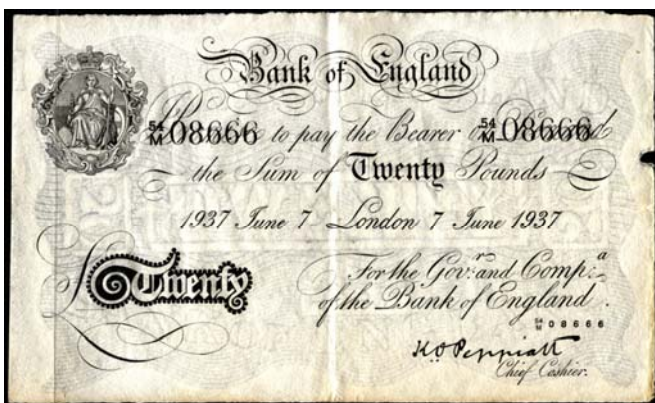 Bank of England
54/M 08666 to pay the Bearer 54/M 08666
the Sum of Twenty Pounds
1937 June 7 London 7 June 1937
£Twenty
For the Govr. and Compa.
of the Bank of England.
54/M 08666
K.O. Peppiatt
Chief Cashier.